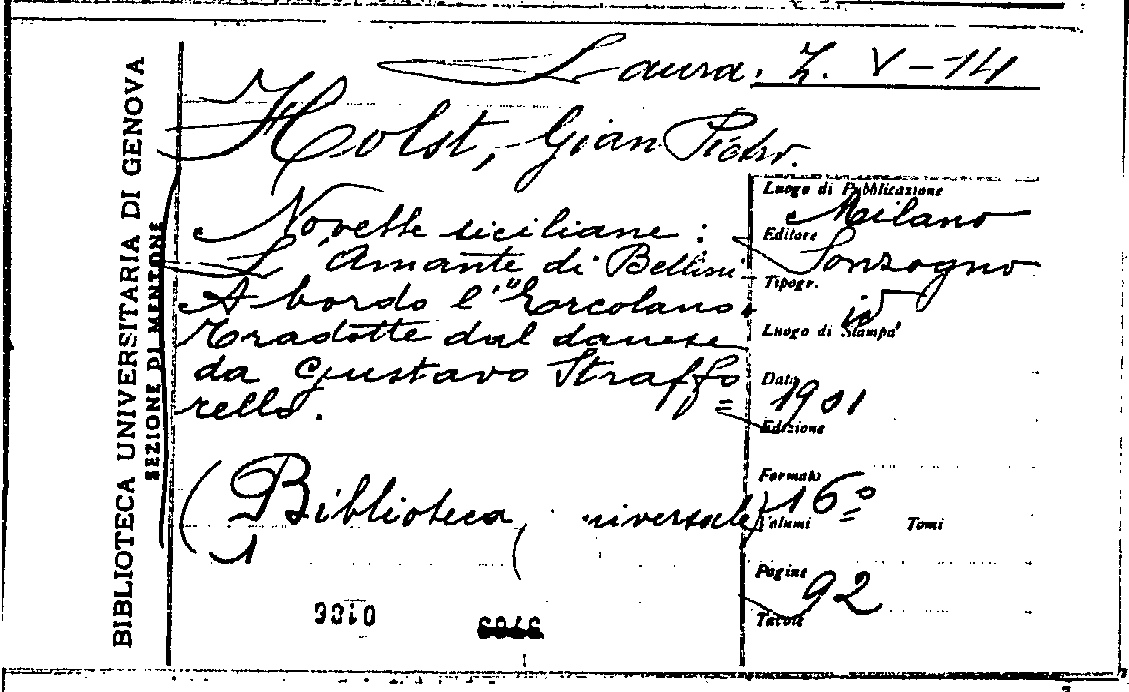 BIBLIOTECA UNIVERSITARIA DI GENOVA
SEZIONE DI MENTONE
Laura. Z. V-14
Holst, Gian Pietro.
Novelle siciliane:
L'Amante di Bellini-
A bordo l'"Ercolano.
Tradotte dal danese
da Gustavo Straffo=
rello.
(Biblioteca universale)
Luogo di Pubblicazione
Milano
Editore
Sonzogno
Tipogr.
id
Luogo di Stampa
Data
1901
Edizione
Formato
16º
Volumi Tomi
Pagine
92
Tavole